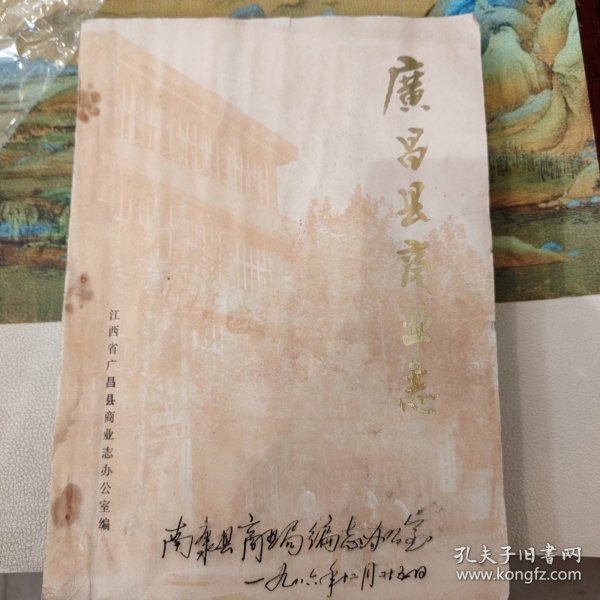 廣昌县商业志
江西省广昌县商业志办公室编
南康县商业局编志办公室
一九八六年十二月廿五日
孔夫子旧书网
www.kongfz.com